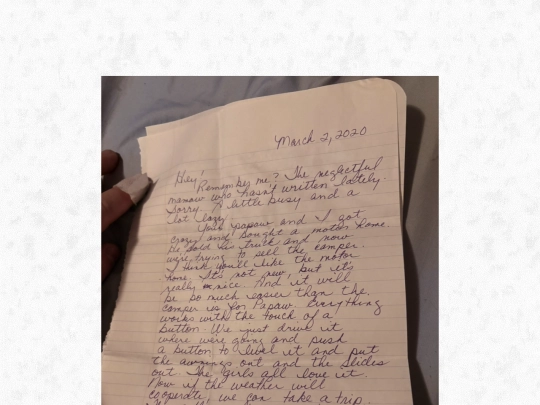 March 2, 2020
Hey!
Remember me? The neglectful
mamaw who hasn't written lately.
Sorry. A little busy and a
lot lazy.
Your papaw and I got
crazy and bought a motor home.
He sold his truck and now
were trying to sell the camper.
I think you'll like the motor
home. It's not new, but it's
really nice. And it will
be so much easier than the
camper is for Papaw. Everything
works with the touch of a
button. We just drive it
where were going and push
a button to level it and put
the awnings out and the slides
out. The girls all love it.
Now if the weather will
cooperate, we can take a trip.